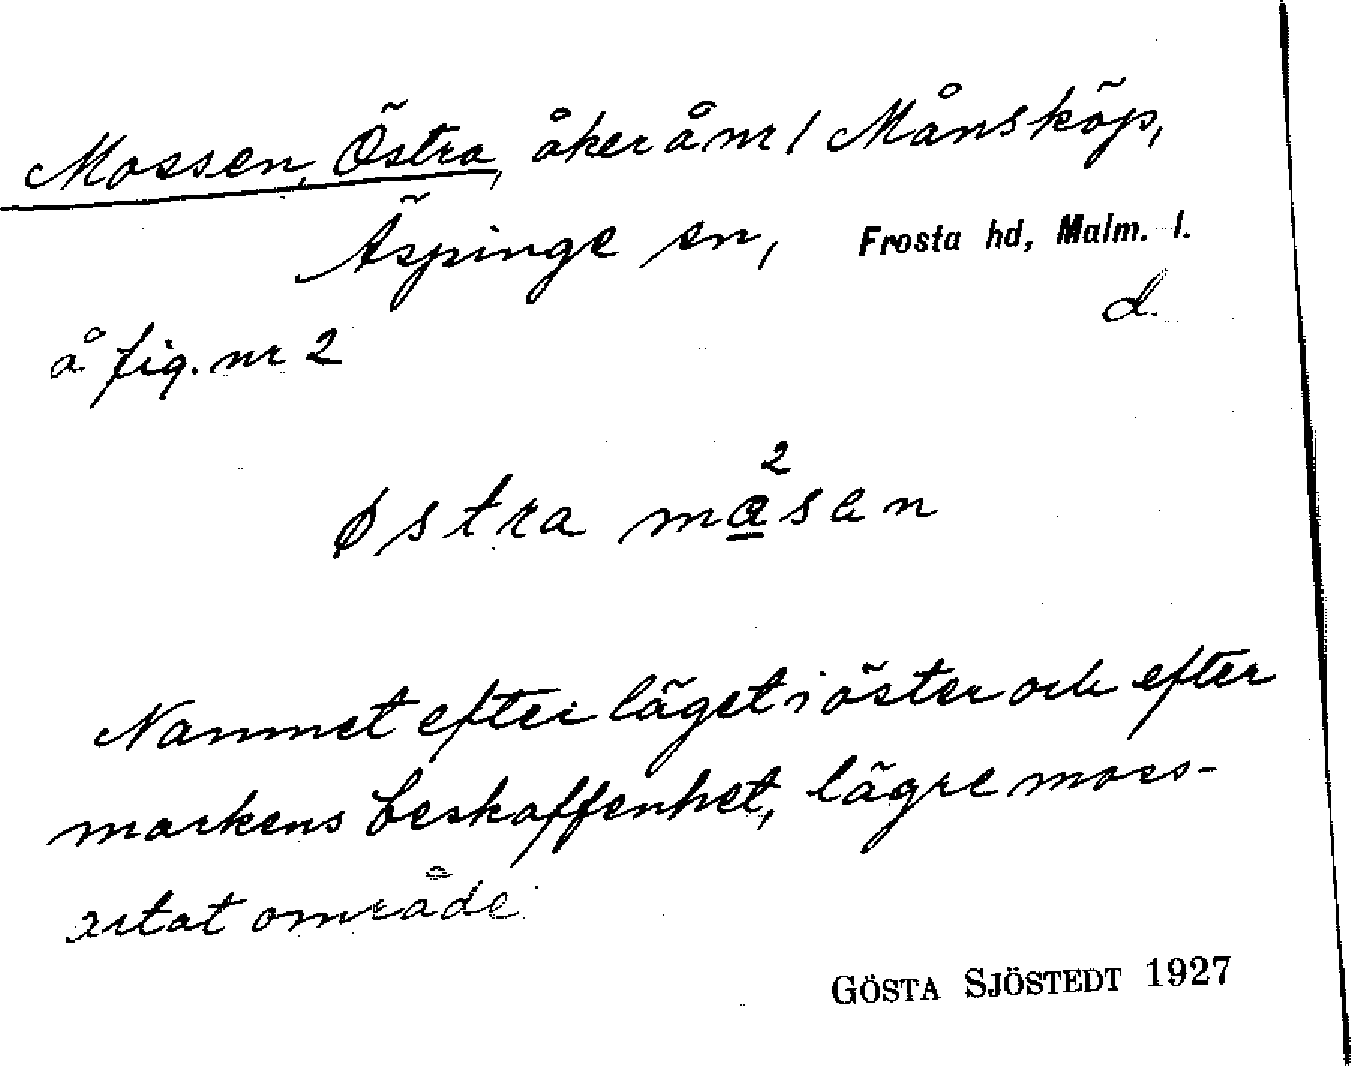 Mossen, Östra, åker å nr 1 Månsköp,
Äspinge sn, Frosta hd, Malm. l.
d.
å fig. nr 2
2
østra måsen
Namnet efter läget i öster och efter
markens beskaffenhet, lägre moss-
artat område.
GÖSTA SJÖSTEDT 1927